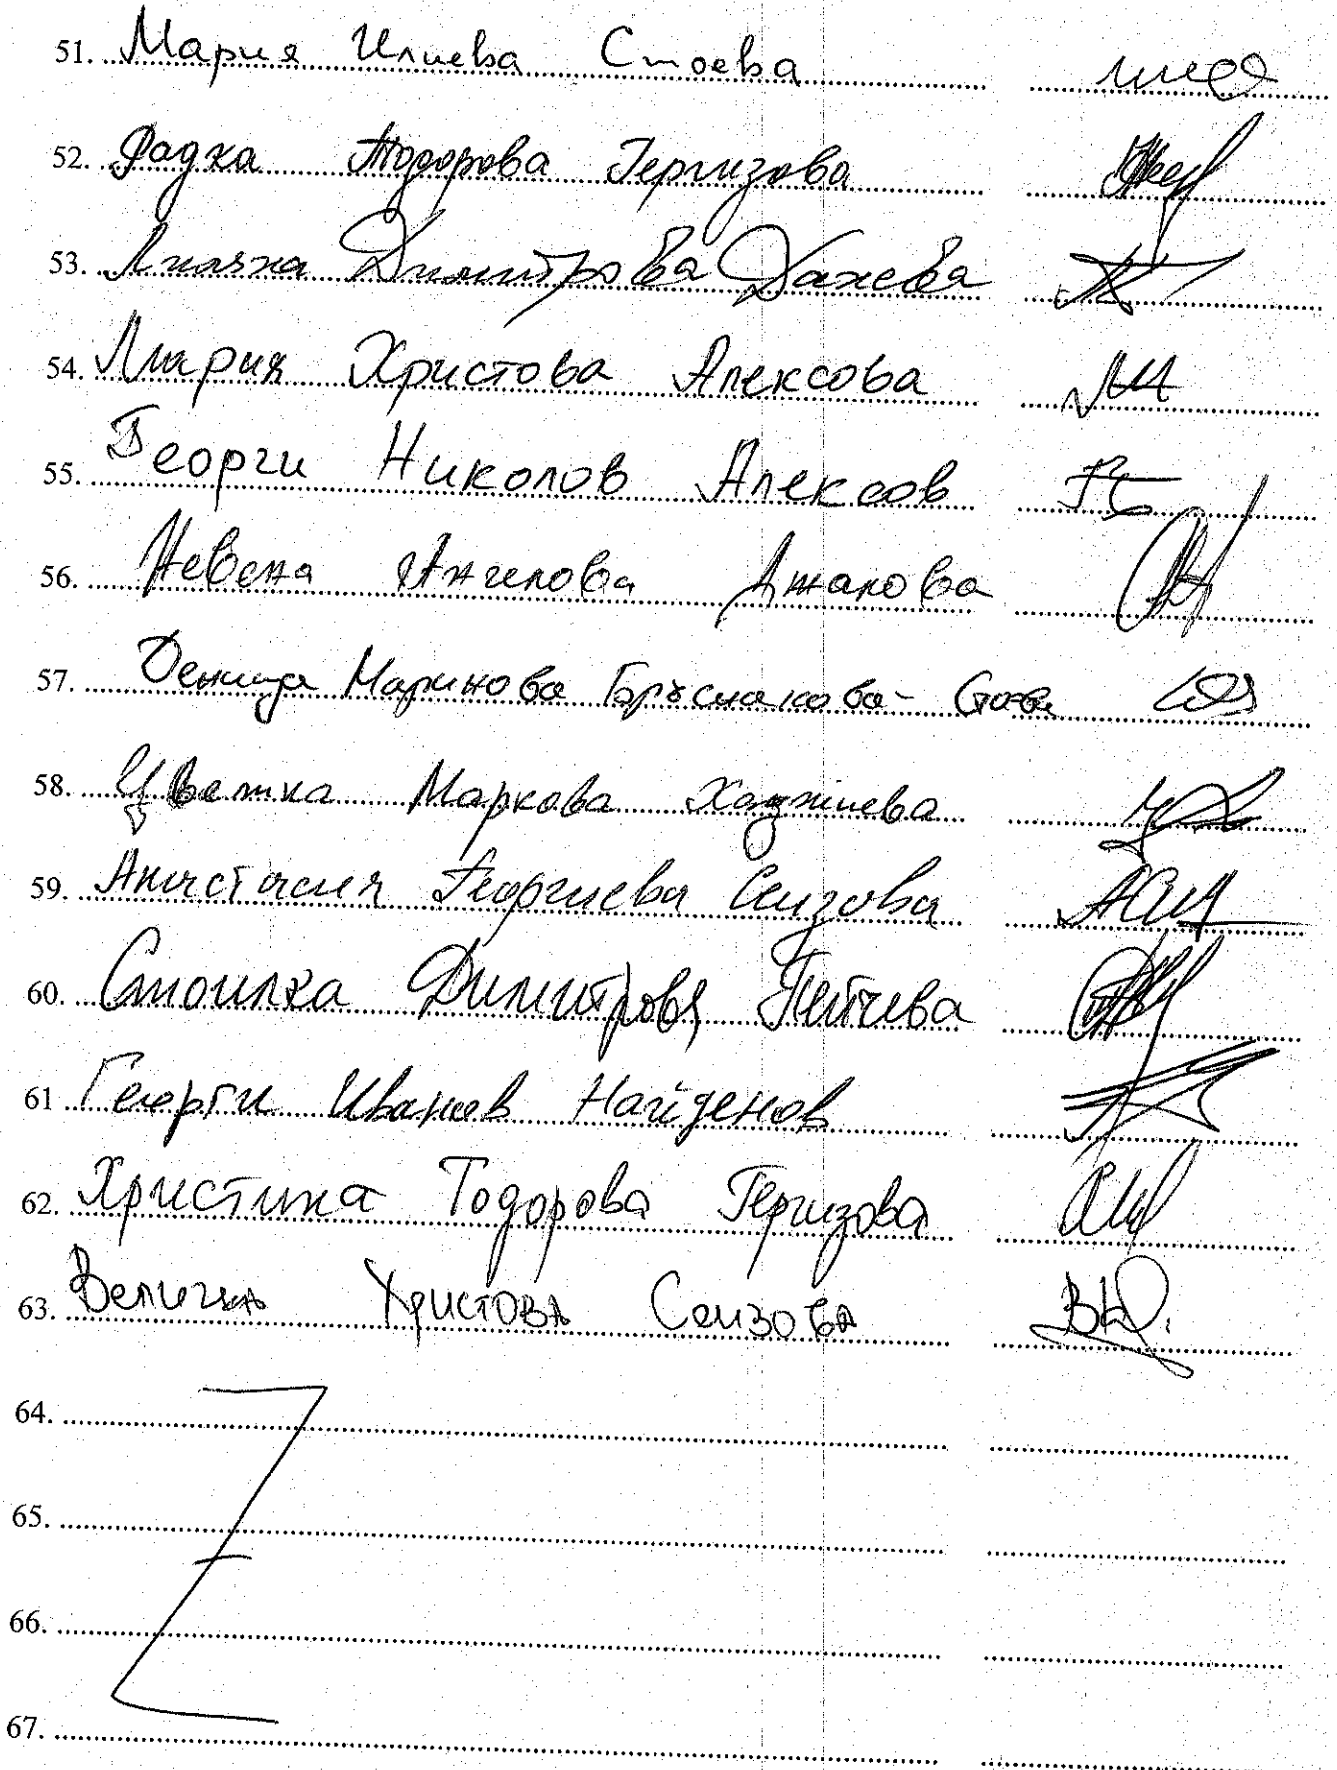 51. Мария Илиева Стоева
52. Радка Тодорова Гергизова
53. Лиляна Димитрова Данева
54. Мария Христова Алексова
55. Георги Николов Алексов
56. Невена Ангелова Джапова
57. Деница Маринова
58. Цветка Маркова Хаджиева
59. Анастасия Георгиева Сеизова
60. Стоилка Димитрова Пейчева
61 Георги Иванов Найденов
62. Христина Тодорова Гергизова
63. Величка Христова Сеизова
64.
65.
66.
67.